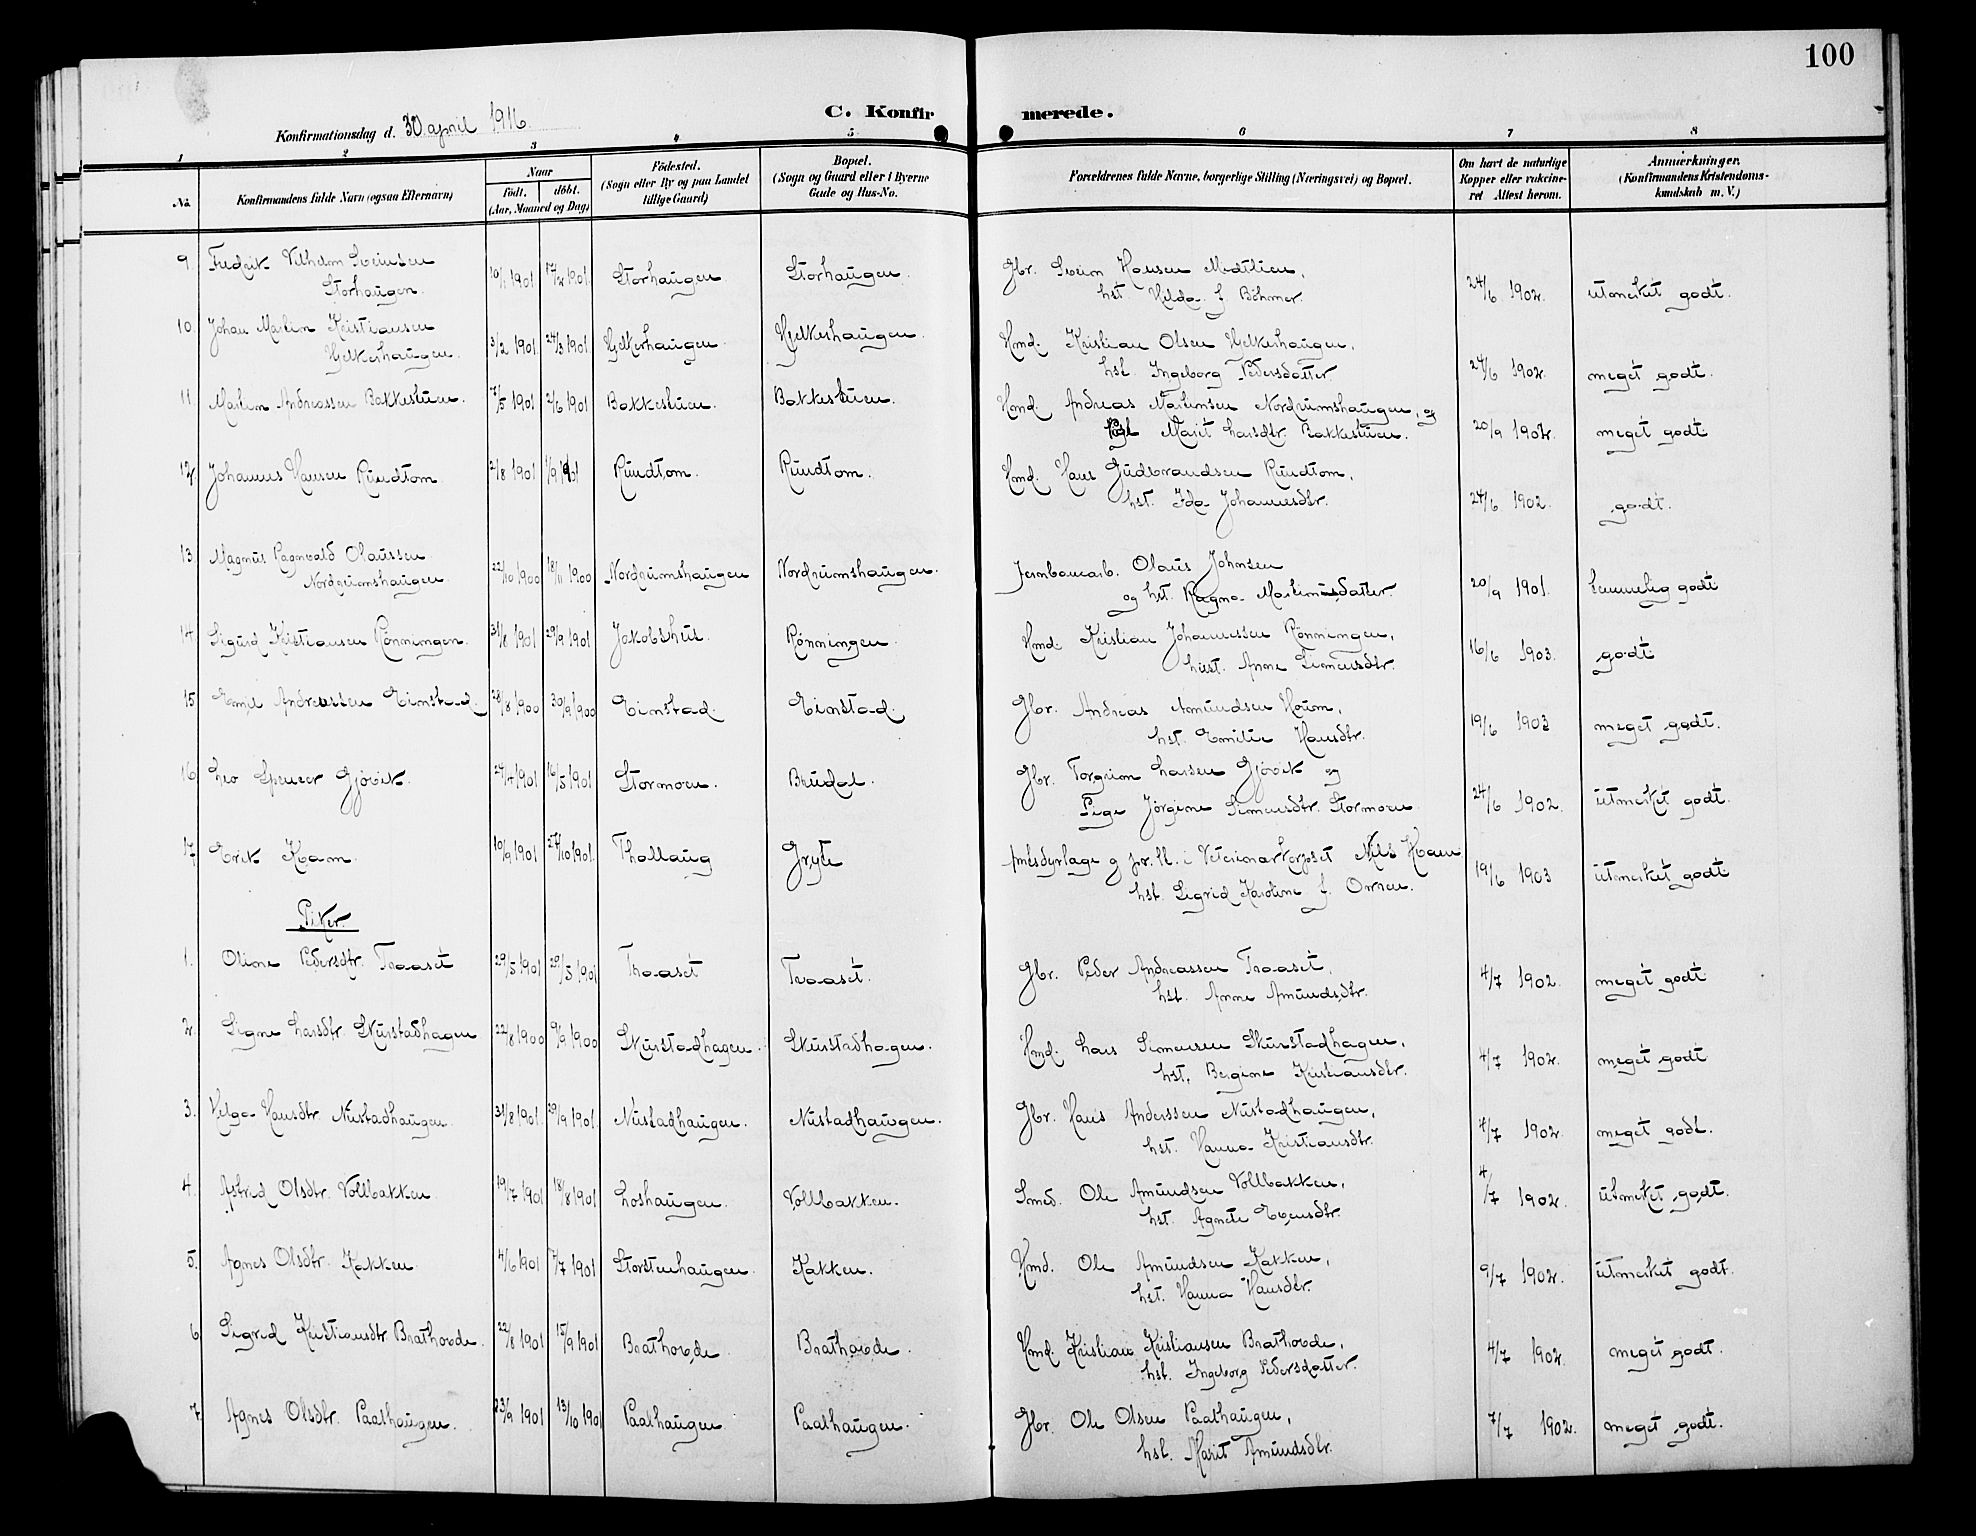 100
C. Konfirmerede.
Konfirmationsdag d. 30 april 1916
1 2 3 4 5 6 7 8
No. Konfirmandens fulde Navn (ogsaa Efternavn) Naar født. døbt. (Aar, Maaned og Dag) Födested. (Sogn eller By og paa Landet tillige Gaard) Bopæl. (Sogn og Gaard eller i Byerne Gade og Hus-No. Forældrenes fulde Navne, borgerlige Stilling (Næringsvei) og Bopæl. Om havt de naturlige Kopper eller vaksineret Attest herom. Anmærkninger. (Konfirmandens Kristendomskundskab m. V.)
9. Fredrik Vilhelm Sveinsen Storhaugen. 10/1 1901 17/2 1901. Storhaugen Storhaugen. Gbr. Svein Hansen Medtlien, hst. Hilda f. Böhmer. 24/6 1902. utmerket godt.
10. Johan Martin Kristiansen Hjelkerhaugen. 3/2 1901. 24/3 1901. Hjelkerhaugen. Hjelkerhaugen. Hmd. Kristian Olsen Hjelkerhaugen, hst. Ingeborg Pedersdatter. 24/6 1902. meget godt.
11. Martin Andreassen Bakkestuen. 7/5 1901 2/6 1901 Bakkestuen. Bakkestuen. Hmd. Andreas Martinsen Nordrumshaugen, og Pige Marit Larsdtr. Bakkestuen. 20/9 1902. meget godt
12. Johannes Hansen Rundtom 2/8 1901 1/9 1901 Rundtom. Rundtom. Hmd. Hans Gudbrandsen Rundtom, hst. Ida Johannesdtr. 24/6 1902. godt.
13. Magnus Ragnvald Olaussen Nordrumshaugen. 22/10 1900 18/11 1900 Nordrumshaugen Nordrumshaugen. Jernbanearb. Olaus Johnsen og hst. Ragna Martinusdatter 20/9 1901. temmelig godt
14. Sigurd Kristiansen Rønningen. 31/8 1901 29/9 1901 Jakobshus. Rønningen. Hmd. Kristian Johannessen Rønningen, hust. Anne Simensdtr. 16/6 1903. godt
15. Emil Andreassen Einstad. 28/8 1900 30/9 1900 Einstad. Einstad. Gbr. Andreas Amundsen Houm, hst. Emilie Hansdtr. 19/6 1903 meget godt.
16. Leo Spencer Gjövik. 24/4 1901 16/5 1901 Stormoen. Brudal. Gbr. Torgrim Larsen Gjövik og Pige Jörgine Simensdtr. Stormoen. 24/6 1902. utmerket godt.
17. Erik Kvam. 10/9 1901. 27/10 1901. Thollaug Gryte Amtsdyrlæge og pr. lt. i Veterinærkorpset Nils Kvam hst. Sigrid Karoline f. Ornen. 19/6 1903 utmerket godt
Piker.
1. Oline Pedersdtr. Traaset 29/5 1901 29/5 1901 Traaset Traaset. Gbr. Peder Andreassen Traaset, hst. Anne Amundsdtr. 4/7 1902. meget godt
2. Signe Larsdtr. Skurstadhagen 22/8 1900 9/9 1900 Skurstadhagen. Skurstadhagen. Hmd. Lars Simensen Skurstadhagen, hst. Bergine Kristiansdtr. 4/7 1902. meget godt
3. Helga Hansdtr Nustadhaugen. 31/8 1901. 29/9 1901. Nustadhaugen. Nustadhaugen. Gbr. Hans Anderssen Nustadhaugen, hst. Hanna Kristiansdtr. 4/7 1902. meget godt.
4. Astrid Olsdtr. Vollbakken. 19/7 1901 18/8 1901 Loshaugen. Vollbakken. Smed. Ole Amundsen Vollbakken, hst. Agnete Evensdtr. 4/7 1902. utmerket godt.
5. Agnes Olsdtr. Kakken 4/6 1901 7/7 1901 Storstenhaugen. Kakken. Hmd. Ole Amundsen Kakken, hst. Hanna Hansdtr. 9/7 1902. utmerket godt.
6. Sigrid Kristiansdtr Brathovde. 22/8 1901 15/9 1901 Brathovde. Brathovde. Hmd. Kristian Kristiansen Brathovde, hst. Ingeborg Pedersdatter. 4/7 1902. meget godt.
7. Agnes Olsdtr. Paalhaugen. 23/9 1901 13/10 1901 Paalhaugen Paalhaugen. Gbr. Ole Olsen Paalhaugen, hst. Marit Amundsdtr. 7/7 1902. meget godt.